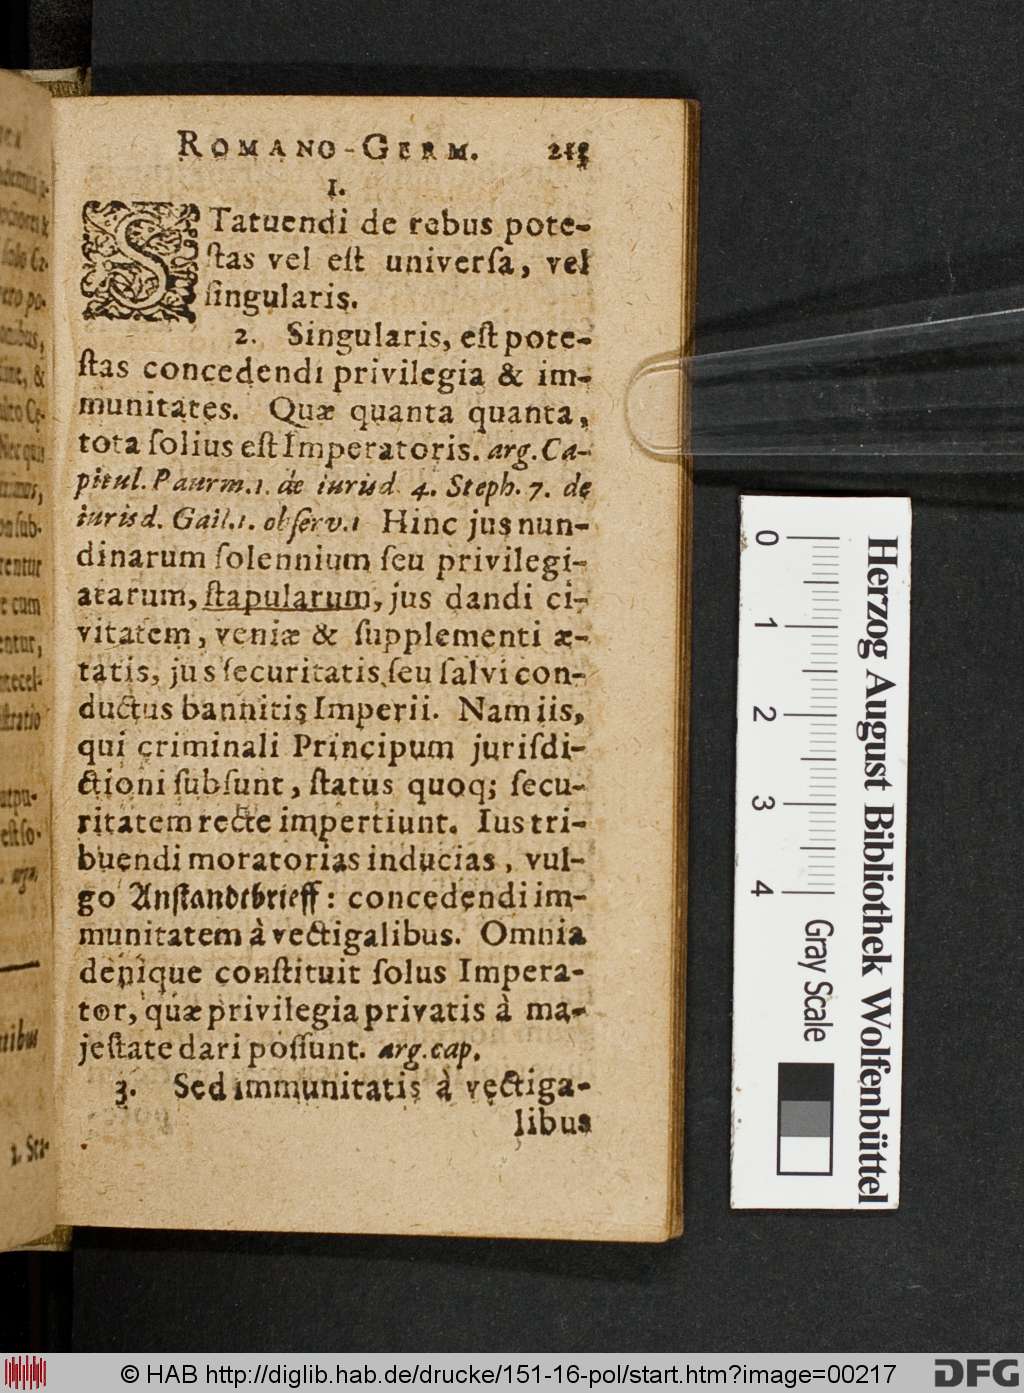 ROMANO-GERM. 215
1.
STatuendi de rebus pote-
ſtas vel eſt univerſa, vel
ſingularis.
2. Singularis, eſt pote-
ſtas concedendi privilegia & im-
munitates. Quæ quanta quanta,
tota ſolius eſt Imperatoris. arg. Ca-
pitul. Paurm. 1. de iurisd. 4. Steph. 7. de
iurisd. Gail. 1. obſerv. 1 Hinc jus nun-
dinarum ſolennium ſeu privilegi-
atarum, ſtapularum, jus dandi ci-
vitatem, veniæ & ſupplementi æ-
tatis, jus ſecuritatis ſeu ſalvi con-
ductus bannitis Imperii. Nam iis,
qui criminali Principum jurisdi-
ctioni ſubſunt, ſtatus quoq; ſecu-
ritatem recte impertiunt. Ius tri-
buendi moratorias inducias, vul-
go Anſtandtbrieff: concedendi im-
munitatem à vectigalibus. Omnia
denique conſtituit ſolus Impera-
tor, quæ privilegia privatis à ma-
jeſtate dari poſſunt. arg. cap.
3. Sed immunitatis à vectiga-
libus
0 1 2 3 4
Gray Scale
Herzog August Bibliothek Wolfenbüttel
© HAB http://diglib.hab.de/drucke/151-16-pol/start.htm?image=00217
DFG